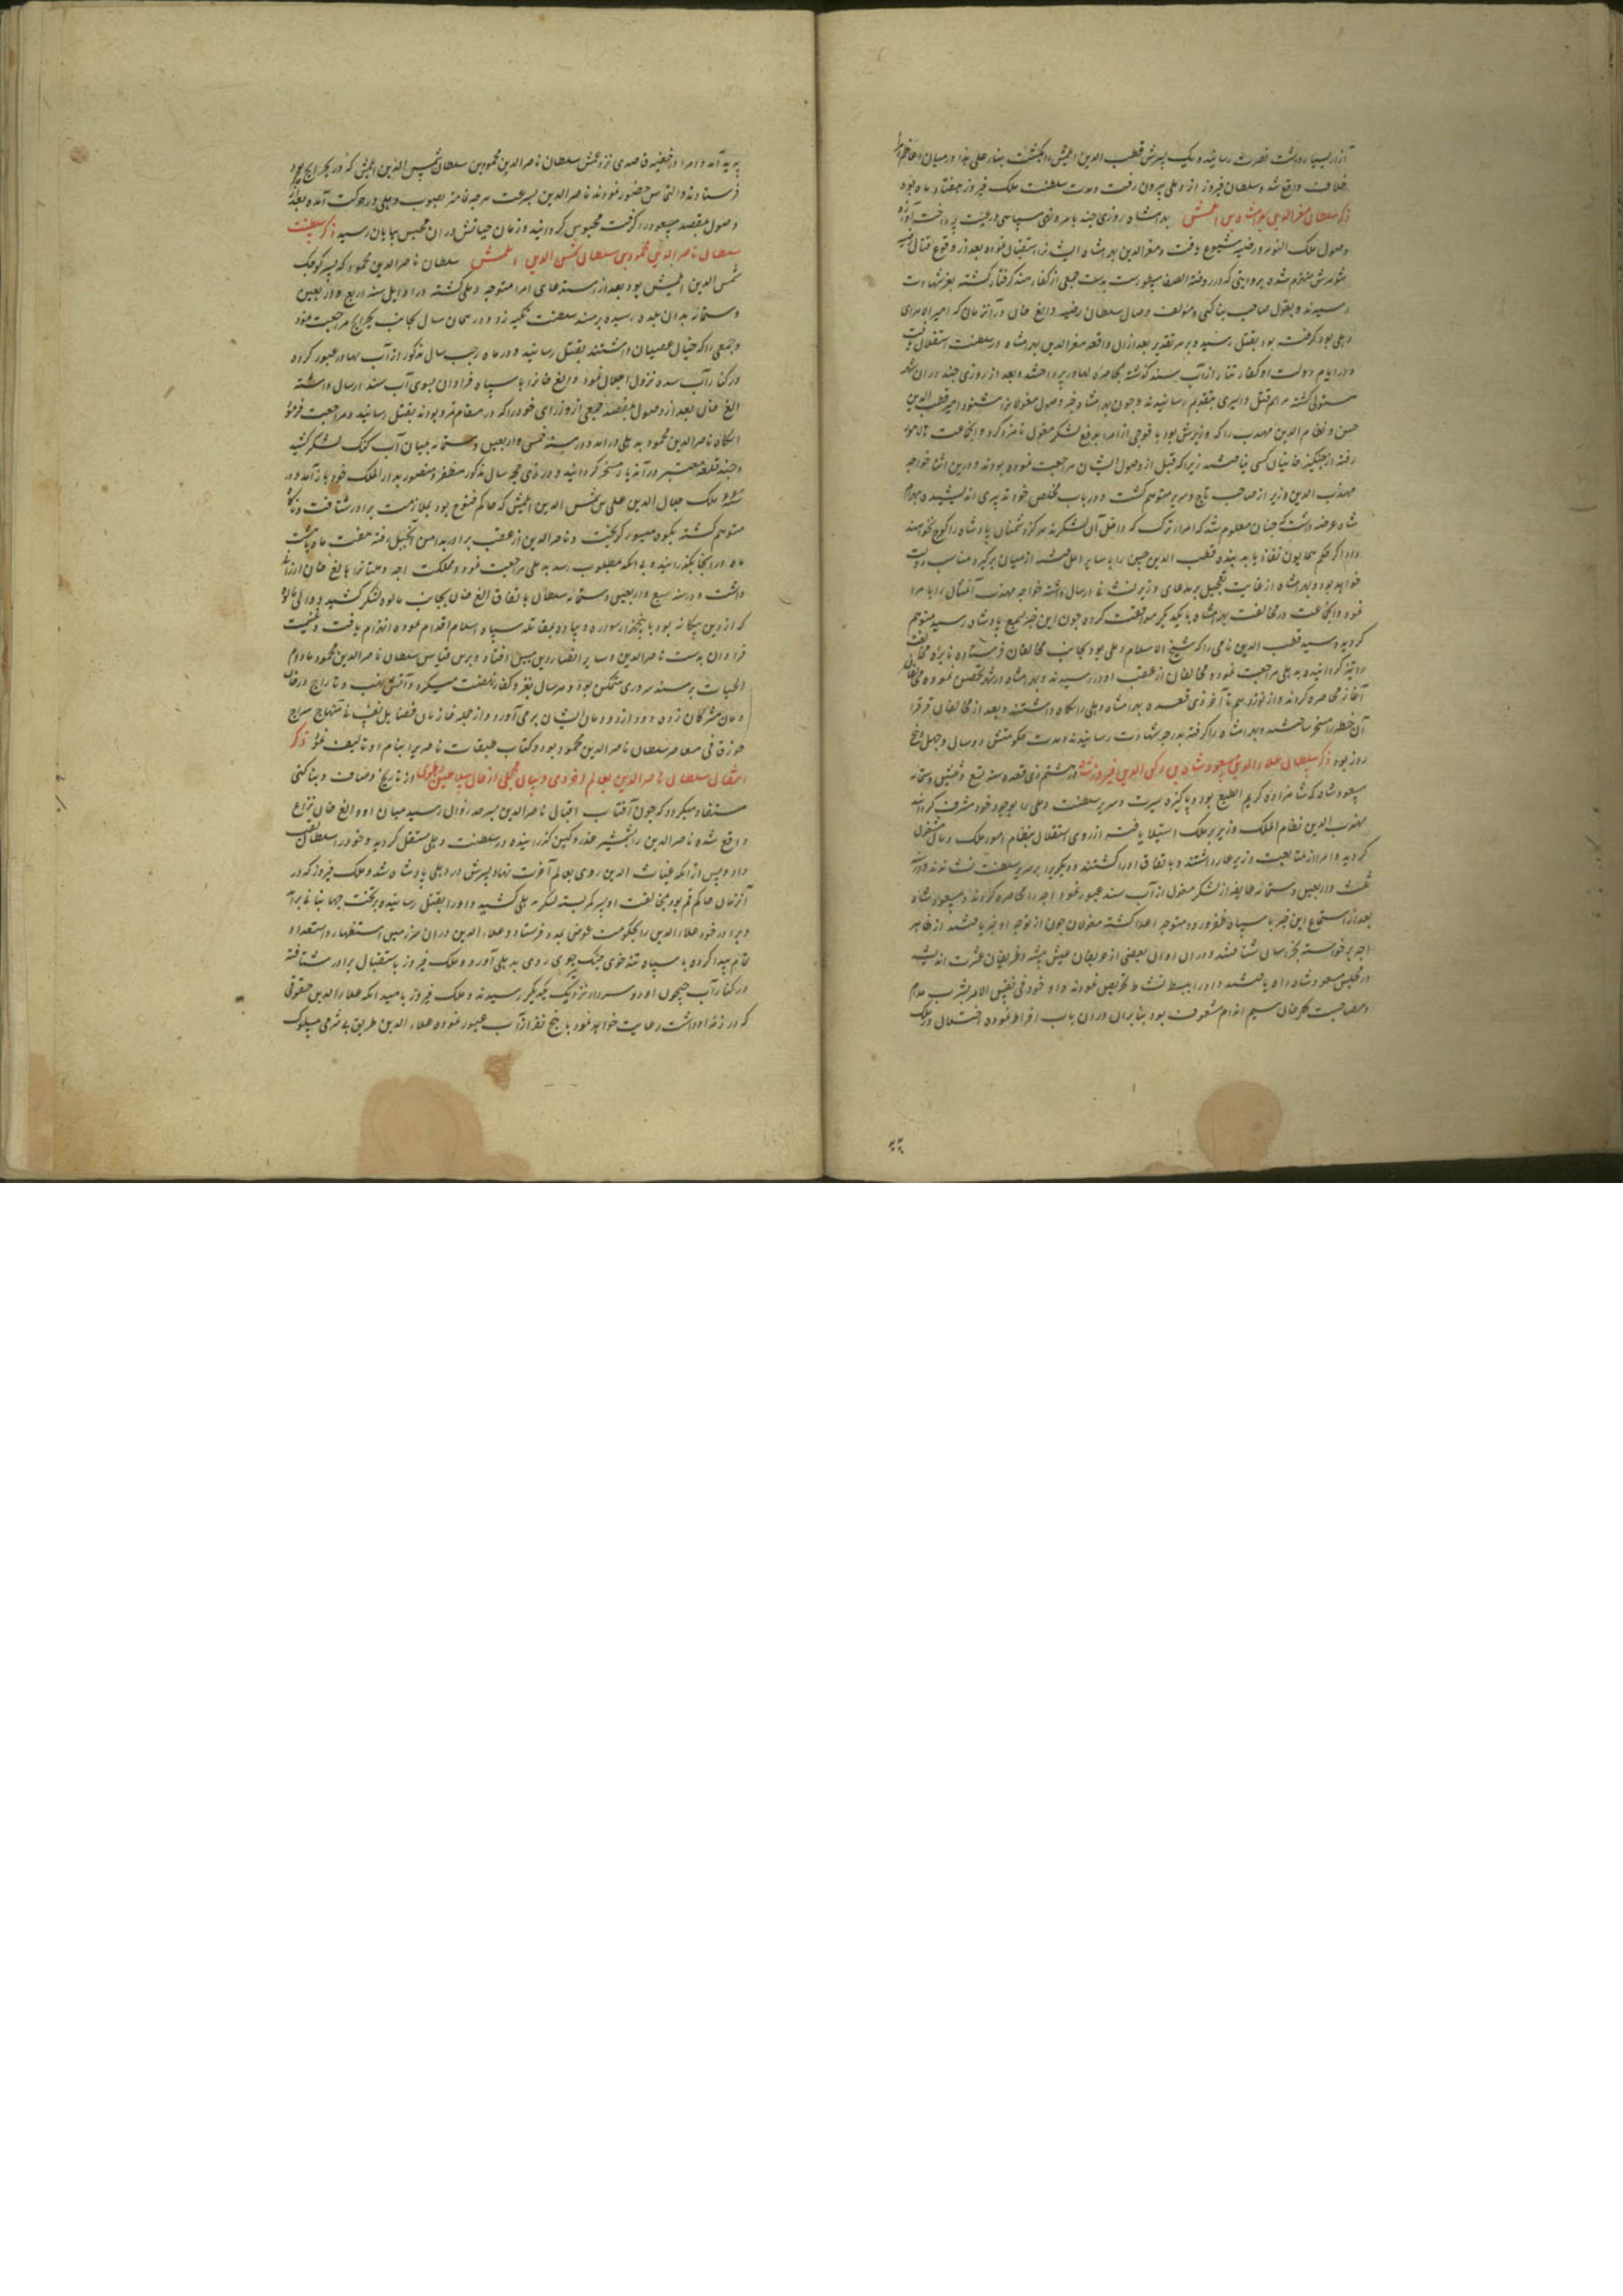 خلاف واقع شد و سلطان فیروز از دهلی بیرون رفت و مدت سلطنت ملک فیروز هفتاد ماه بود
ذکر سلطان معزالدین بهرامشاه بن ایلتمش بهرامشاه روزی چند بامر
وصول ملک التونیه و رضیه شیوع یافت و معزالدین بهرامشاه ایشانرا استقبال نموده بعد از وقوع قتال رضیه
شوهرش منهزم شده بروایتی که در روضة الصفا مسطورست بدست جمعی از کفار هند گرفتار گشته بعز شهادت
رسیدند و بقول صاحب بناکتی و مؤلف وصاف سلطان رضیه و الغ خان در آنزمان که امیر
دهلی بود گرفت بود بقتل رسید و بر هر تقدیر بعد از آن واقعه معزالدین بهرامشاه در سلطنت استقلال یافت
و در ایام دولت او کفار تتار از آب سند گذشته بمحاصره لهاور پرداختند و بعد از روزی چند در آن شهر
مستولی گشته مراسم قتل و اسیری بتقدیم رسانیدند و چون بهرامشاه خبر وصول مغولانرا شنود امیر قطب الدین
حسن و نظام الدین مهذب را که وزیرش بود با فوجی از امرا بدفع لشکر مغول نامزد کرد و آنجماعت تا لاهور
رفته از چنگیزخانیان کسی نیافتند زیرا که قبل از وصول ایشان مراجعت نموده بودند و درین اثنا خواجه
مهذب الدین وزیر از صاحب تاج و سریر متوهم گشت و در باب مخلص خود تدبیری اندیشیده بهرام
شاه عرضه داشت که چنان معلوم شد که امراء ترک که داخل آن لشکرند هرگز دشمنان پادشاه را کوچ نخواهند
داد اگر حکم همایون نفاذ یابد بنده قطب الدین حسن را با سایر اهل فتنه از میان برگیرد مناسب دولت
خواهد بود و بهرامشاه از غایت تعجیل بر مدعای وزیر نشانی ارسال داشته خواجه مهذب آنمثال را بامرا
نمود و آنجماعت در مخالفت بهرامشاه با یکدیگر موافقت کردند چون این خبر بسمع پادشاه رسید متوهم
گردید و سید قطب الدین نامی را که شیخ الاسلام دهلی بود بجانب مخالفان فرستاد تا نیران مخالفت
آغاز محاصره کردند و از نوزدهم تا آخر ذی قعده بهرامشاه دهلی را نگاه داشتند و بعد از آن مخالفان قهرا قسرا
آن خطه را مسخر ساختند و بهرامشاه را گرفته بدرجه شهادت رسانیدند و مدت حکومتش دو سال و چهل و پنج
روز بود ذکر سلطان علاء الدین مسعود شاه بن رکن الدین فیروز شاه در هشتم ذی قعده سنه تسع و ثلثین و ستمائه
مسعود شاه که شاهزاده کریم الطبع بود و پاکیزه سیرت و سریر سلطنت دهلی را بوجود خود مشرف گردانید
مهذب الدین نظام الملک وزیر بر ملک استیلا یافت از روی استقلال بنظام امور ملک و مال مشغول
گردید و امرا از متابعت وزیر عار داشتند و باتفاق او را کشتند و دیگری را بر سریر سلطنت نشاندند و در سنه
ثلث و اربعین و ستمائه طایفه از لشکر مغول از آب سند عبور نمود و اجه را محاصره کردند و مسعود شاه
بعد از استماع این خبر با سپاه ظفر ورود متوجه اعدا گشته مغولان چون از توجه او خبر یافتند از ظاهر
اجه برخواسته بخراسان شتافتند و در آن اوان بعضی از حریفان عیش پیشه و ظریفان عشرت اندیشه
در مجلس مسعود شاه راه یافتند و او را ببسط نشاط تحریص نمودند و او خود فی نفس الامر بشرب مدام
و مصاحبت گلرخان سیم اندام مشعوف بود بنابران در آن باب افراط نموده اختلال در ملک
پدید آمد و امرا در خفیه قاصدی نزد عمش سلطان ناصرالدین محمود بن سلطان شمس الدین ایلتمش که در بهرایج بود
فرستادند و التماس حضور نمودند ناصرالدین بسرعت هرچه تمامتر بصوب دهلی در حرکت آمده بعد از
وصول بمقصد مسعود را گرفت محبوس گردانید و زمان حیاتش در آن محبس بپایان رسید ذکر سلطنت
سلطان ناصرالدین محمود بن سلطان شمس الدین ایلتمش سلطان ناصرالدین محمود که پسر کوچک
شمس الدین ایلتمش بود بعد از استدعای امرا متوجه دهلی گشته در اوایل سنه اربع و اربعین
و ستمائه بدان بلده رسیده بر مسند سلطنت تکیه زد و در همان سال بجانب بهرایج مراجعت نمود
و جمعی را که خیال عصیان داشتند بقتل رسانید و در ماه رجب سال مذکور از آب لهاور عبور کرده
در کنار آب سند نزول اجلال نمود و الغ خانرا با سپاه فراوان بسوی آب سند ارسال داشته
الغ خان بعد از وصول بمقصد جمعی از وزرای خود را که در مقام تمرد بودند بقتل رسانید و مراجعت فرمود
آنگاه ناصرالدین محمود بدهلی درآمد و در سنه خمس و اربعین و ستمائه بمیان آب کنک لشکر کشید
و چند قلعه معتبر در آندیار مسخر گردانید و در ذی حجه سال مذکور مظفر و منصور بدار الملک خود بازآمد و در
ملک جلال الدین علی بن شمس الدین ایلتمش که حاکم قنوج بود بملازمت برادر شتافت و ناگاه
متوهم گشته بکوه گریخت و ناصرالدین از عقب برادر بدامن آنجبل رفته هفت ماه یا هشت
ماه در آنجا بگذرانید و بی آنکه بمطلوب رسد بدهلی مراجعت نمود و مملکت اجه و ملتانرا بالغ خان ارزانی
داشت و در سنه سبع و اربعین و ستمائه سلطان باتفاق الغ خان بجانب مالوه لشکر کشید و والی مالوه
که از دین بیگانه بود با پنجهزار سواره و پیاده بمقابله سپاه اسلام اقدام نموده انهزام یافت و غنیمت
فراوان بدست ناصرالدین و سایر انصار دین مبین افتاد و برین قیاس سلطان ناصرالدین محمود مادام
الحیات بر مسند سروری متمکن بود و هر سال بغزو کفار نهضت میکرد و آتش نهب و تاراج در خان
و مان مشرکان زده دود از دودمان ایشان برمی آورد و از جمله فضایل نفسانی منهاج سراج
جوزجانی معاصر سلطان ناصرالدین محمود بود و کتاب طبقات ناصریرا بنام او تالیف نمود ذکر
انتقال سلطان ناصرالدین بعالم اخروی و بیان مجملی از حال سلاطین دهلی از تاریخ وصاف و بناکتی
مستفاد میگردد که چون آفتاب اقبال ناصرالدین بسرحد زوال رسید میان او و الغ خان نزاع
واقع شده ناصرالدین را بشمشیر غدر و کین گذرانیده در سلطنت دهلی مستقل گردید و خود را سلطان لقب
داد و پس از آنکه غیاث الدین روی بعالم آخرت نهاد پسرش در دهلی پادشاه شد و ملک فیروز که در
آنزمان حاکم بود بمخالفت او کمر بسته لشکر بدهلی کشید و او را بقتل رسانیده بر تخت جهانبانی برآمد
و برادرزاده خود علاء الدین را بحکومت عوض بداون فرستاد و علاء الدین در آن سرزمین استظهار و استعداد
تمام پیدا کرده با سپاه تندخوی جنگ جوی روی بدهلی آورد و ملک فیروز باستقبال برادر شتافته
در کنار آب جیحون او و سردار نزدیک یکدیگر رسیدند و ملک فیروز بامید آنکه علاء الدین حقوقی
که در ذمه او داشت رعایت خواهد نمود با پنج نفر از آب عبور نموده علاء الدین طریق بی شرمی مسلوک